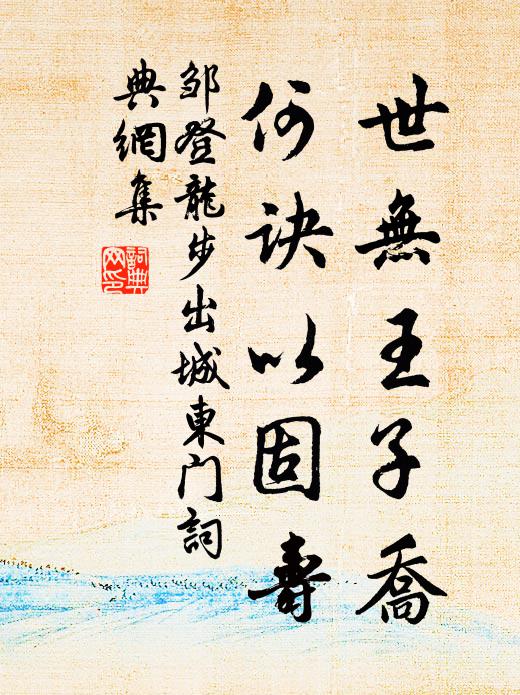 世無王子喬
何訣以固壽
邹登龍步出城東门詞
典網集
詞典
网印